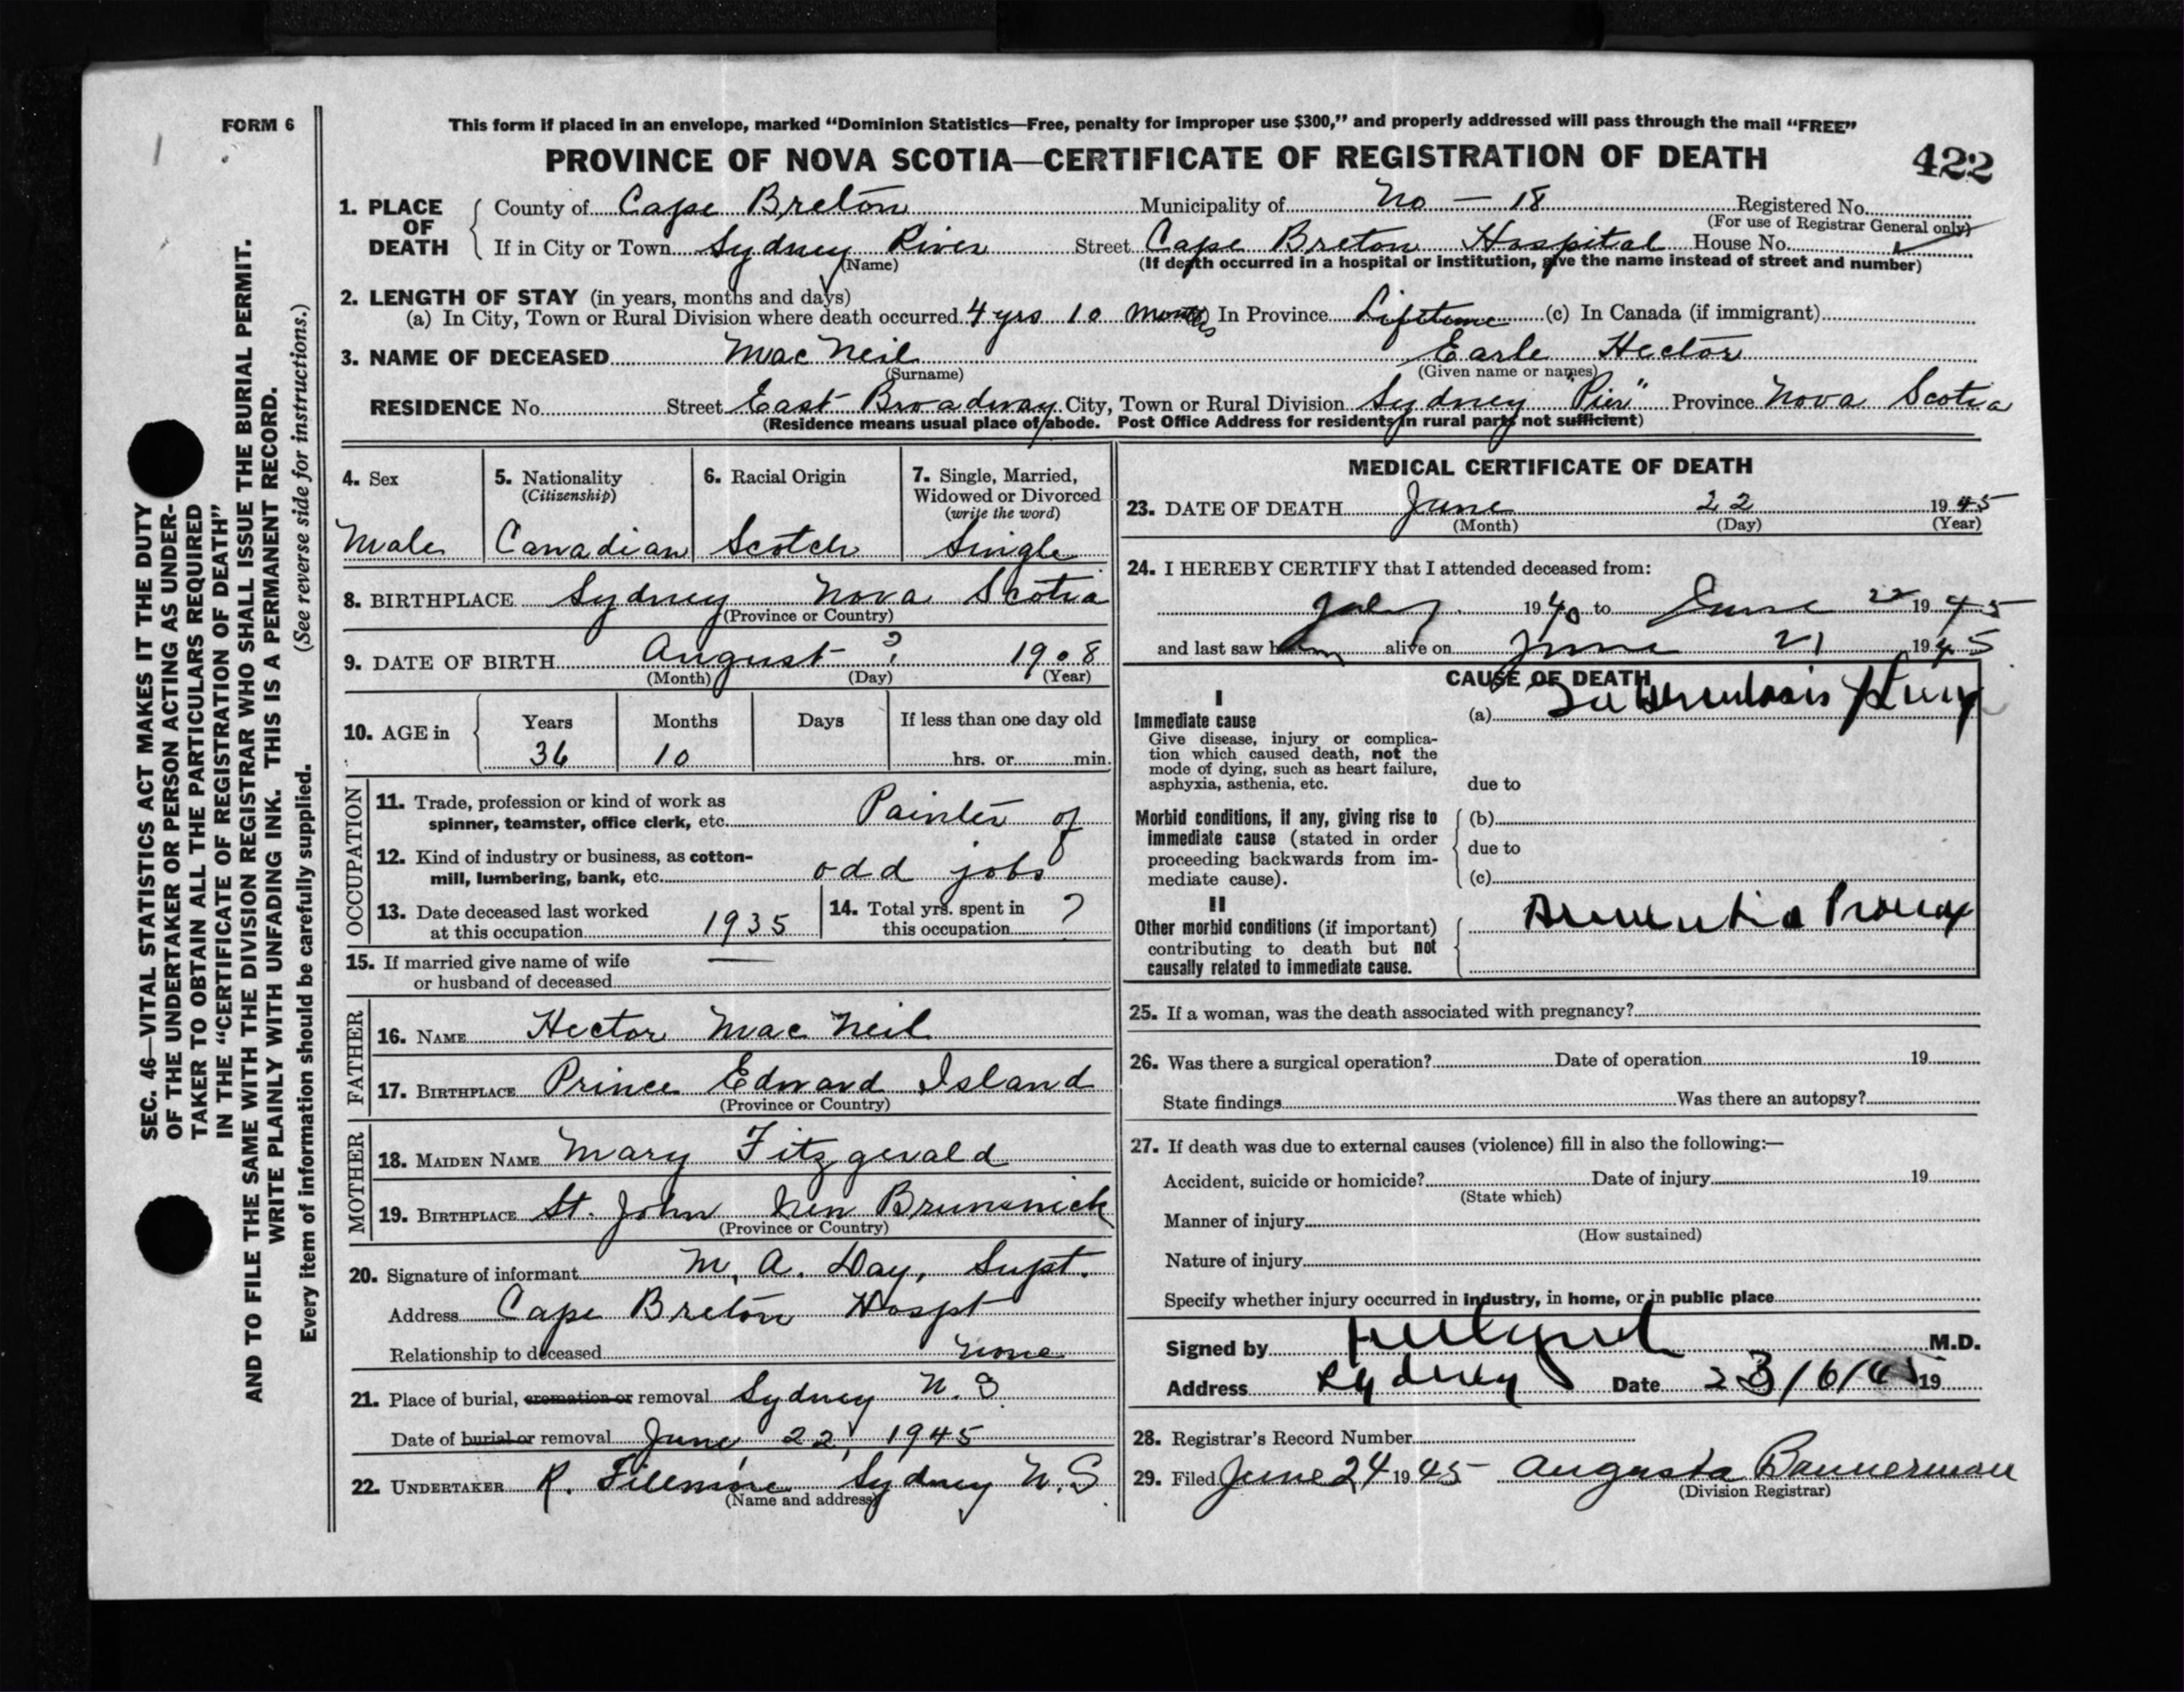 FORM 6
This form if placed in an envelope, marked “Dominion Statistics—Free, penalty for improper use $300,” and properly addressed will pass through the mail “FREE”
PROVINCE OF NOVA SCOTIA—CERTIFICATE OF REGISTRATION OF DEATH
422
1. PLACE OF DEATH
County of Cape Breton Municipality of No — 18 Registered No.
(For use of Registrar General only)
If in City or Town Sydney River Street Cape Breton Hospital House No.
(Name) (If death occurred in a hospital or institution, give the name instead of street and number)
2. LENGTH OF STAY (in years, months and days)
(a) In City, Town or Rural Division where death occurred 4 yrs 10 months In Province Lifetime (c) In Canada (if immigrant)
3. NAME OF DECEASED MacNeil Earle Hector
(Surname) (Given name or names)
RESIDENCE No. Street East Broadway City, Town or Rural Division Sydney "Pier" Province Nova Scotia
(Residence means usual place of abode. Post Office Address for residents in rural parts not sufficient)
4. Sex
Male
5. Nationality
(Citizenship)
Canadian
6. Racial Origin
Scotch
7. Single, Married,
Widowed or Divorced
(write the word)
Single
8. BIRTHPLACE Sydney Nova Scotia
(Province or Country)
9. DATE OF BIRTH August ? 1908
(Month) (Day) (Year)
10. AGE in
Years Months Days If less than one day old
36 10 hrs. or min.
OCCUPATION
11. Trade, profession or kind of work as
spinner, teamster, office clerk, etc. Painter of
12. Kind of industry or business, as cotton-
mill, lumbering, bank, etc. odd jobs
13. Date deceased last worked
at this occupation 1935
14. Total yrs. spent in
this occupation ?
15. If married give name of wife
or husband of deceased —
FATHER
16. NAME Hector MacNeil
17. BIRTHPLACE Prince Edward Island
(Province or Country)
MOTHER
18. MAIDEN NAME Mary Fitzgerald
19. BIRTHPLACE St. John New Brunswick
(Province or Country)
20. Signature of informant M. A. Day, Supt.
Address Cape Breton Hospt
Relationship to deceased None
21. Place of burial, cremation or removal Sydney N. S.
Date of burial or removal June 22, 1945
22. UNDERTAKER R. Fillmore Sydney N. S.
(Name and address)
MEDICAL CERTIFICATE OF DEATH
23. DATE OF DEATH June 22 1945
(Month) (Day) (Year)
24. I HEREBY CERTIFY that I attended deceased from:
July 1940 to June 22 1945
and last saw him alive on June 21 1945
CAUSE OF DEATH
I
Immediate cause
Give disease, injury or complica-
tion which caused death, not the
mode of dying, such as heart failure,
asphyxia, asthenia, etc.
(a) Tuberculosis Lung
due to
Morbid conditions, if any, giving rise to
immediate cause (stated in order
proceeding backwards from im-
mediate cause).
(b)
due to
(c)
II
Other morbid conditions (if important)
contributing to death but not
causally related to immediate cause.
Dementia Praecox
25. If a woman, was the death associated with pregnancy?
26. Was there a surgical operation? Date of operation 19
State findings Was there an autopsy?
27. If death was due to external causes (violence) fill in also the following:—
Accident, suicide or homicide? Date of injury 19
(State which)
Manner of injury
(How sustained)
Nature of injury
Specify whether injury occurred in industry, in home, or in public place
Signed by M.D.
Address Sydney Date 23/6/45 19
28. Registrar's Record Number
29. Filed June 24 1945 Augusta Bannerman
(Division Registrar)
SEC. 46—VITAL STATISTICS ACT MAKES IT THE DUTY
OF THE UNDERTAKER OR PERSON ACTING AS UNDER-
TAKER TO OBTAIN ALL THE PARTICULARS REQUIRED
IN THE “CERTIFICATE OF REGISTRATION OF DEATH”
AND TO FILE THE SAME WITH THE DIVISION REGISTRAR WHO SHALL ISSUE THE BURIAL PERMIT.
WRITE PLAINLY WITH UNFADING INK. THIS IS A PERMANENT RECORD.
Every item of information should be carefully supplied. (See reverse side for instructions.)